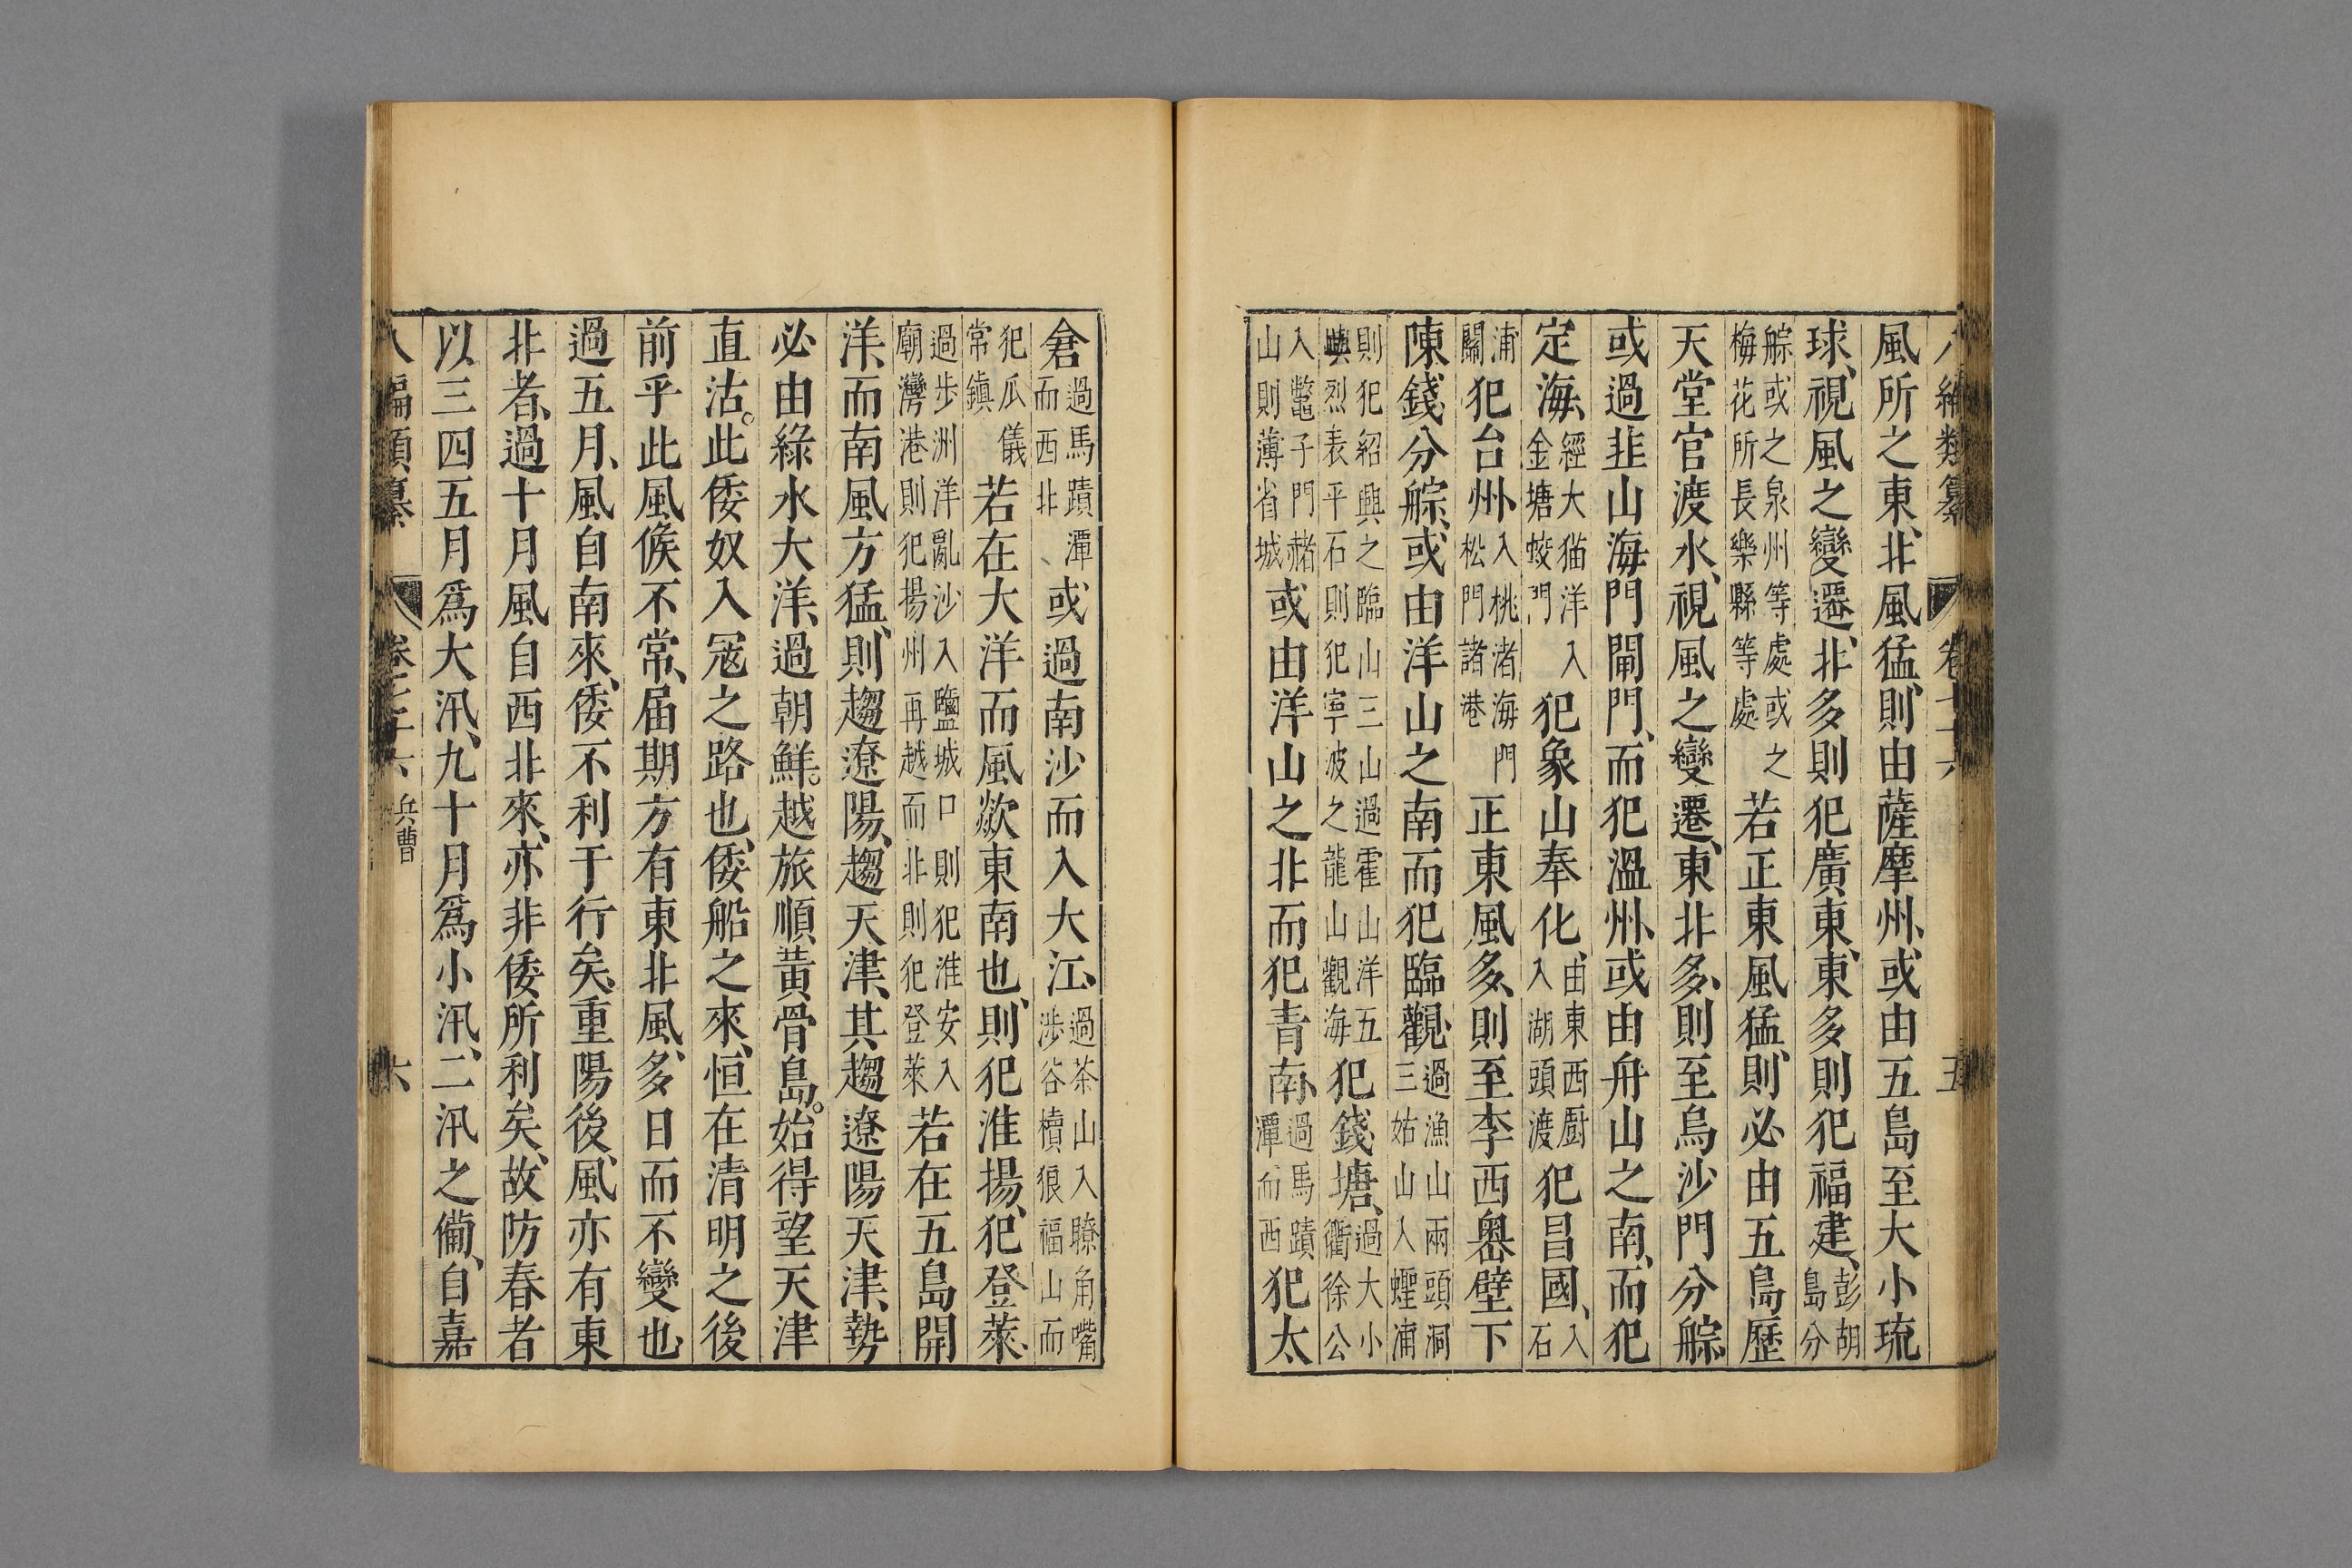 風所之東、北風猛、則由薩摩州、或由五島至大小琉
球、視風之變遷、北多則犯廣東、東多則犯福建、彭胡島分
䑸或之泉州等處或之梅花所長樂縣等處若正東風猛、則必由五島歷
天堂官渡水、視風之變遷、東北多、則至烏沙門分䑸、
或過韭山海門閘門、而犯溫州、或由舟山之南、而犯
定海、經大猫洋入金塘蛟門犯象山奉化、由東西厨入湖頭渡犯昌國、入石
浦關犯台州、入桃渚海門松門諸港正東風多、則至李西嶴壁下
陳錢分䑸、或由洋山之南而犯臨觀、過漁山兩頭洞三姑山入蟶浦
則犯紹興之臨山三山過霍山洋五嶼烈表平石則犯寧波之龍山觀海犯錢塘、過大小衢徐公
山入鼈子門赭山則薄省城或由洋山之北而犯青南、過馬蹟潭而西犯太
倉過馬蹟潭而西北、或過南沙而入大江、過茶山入瞭角嘴涉谷積狼福山而
犯瓜儀常鎮若在大洋而風欻東南也、則犯淮揚、犯登萊、
過步洲洋亂沙入鹽城口則犯淮安入廟灣港則犯揚州再越而北則犯登萊若在五島開
洋、而南風方猛、則趨遼陽、趨天津、其趨遼陽天津、勢
必由綠水大洋、過朝鮮。越旅順黃骨島。始得望天津
直沽。此倭奴入冦之路也、倭船之來、恒在清明之後
前乎此風候不常、屆期方有東北風、多日而不變也
過五月、風自南來、倭不利于行矣、重陽後、風亦有東
北者、過十月風自西北來、亦非倭所利矣、故防春者
以三四五月爲大汛、九十月爲小汛、二汛之備、自嘉
兵曹
六